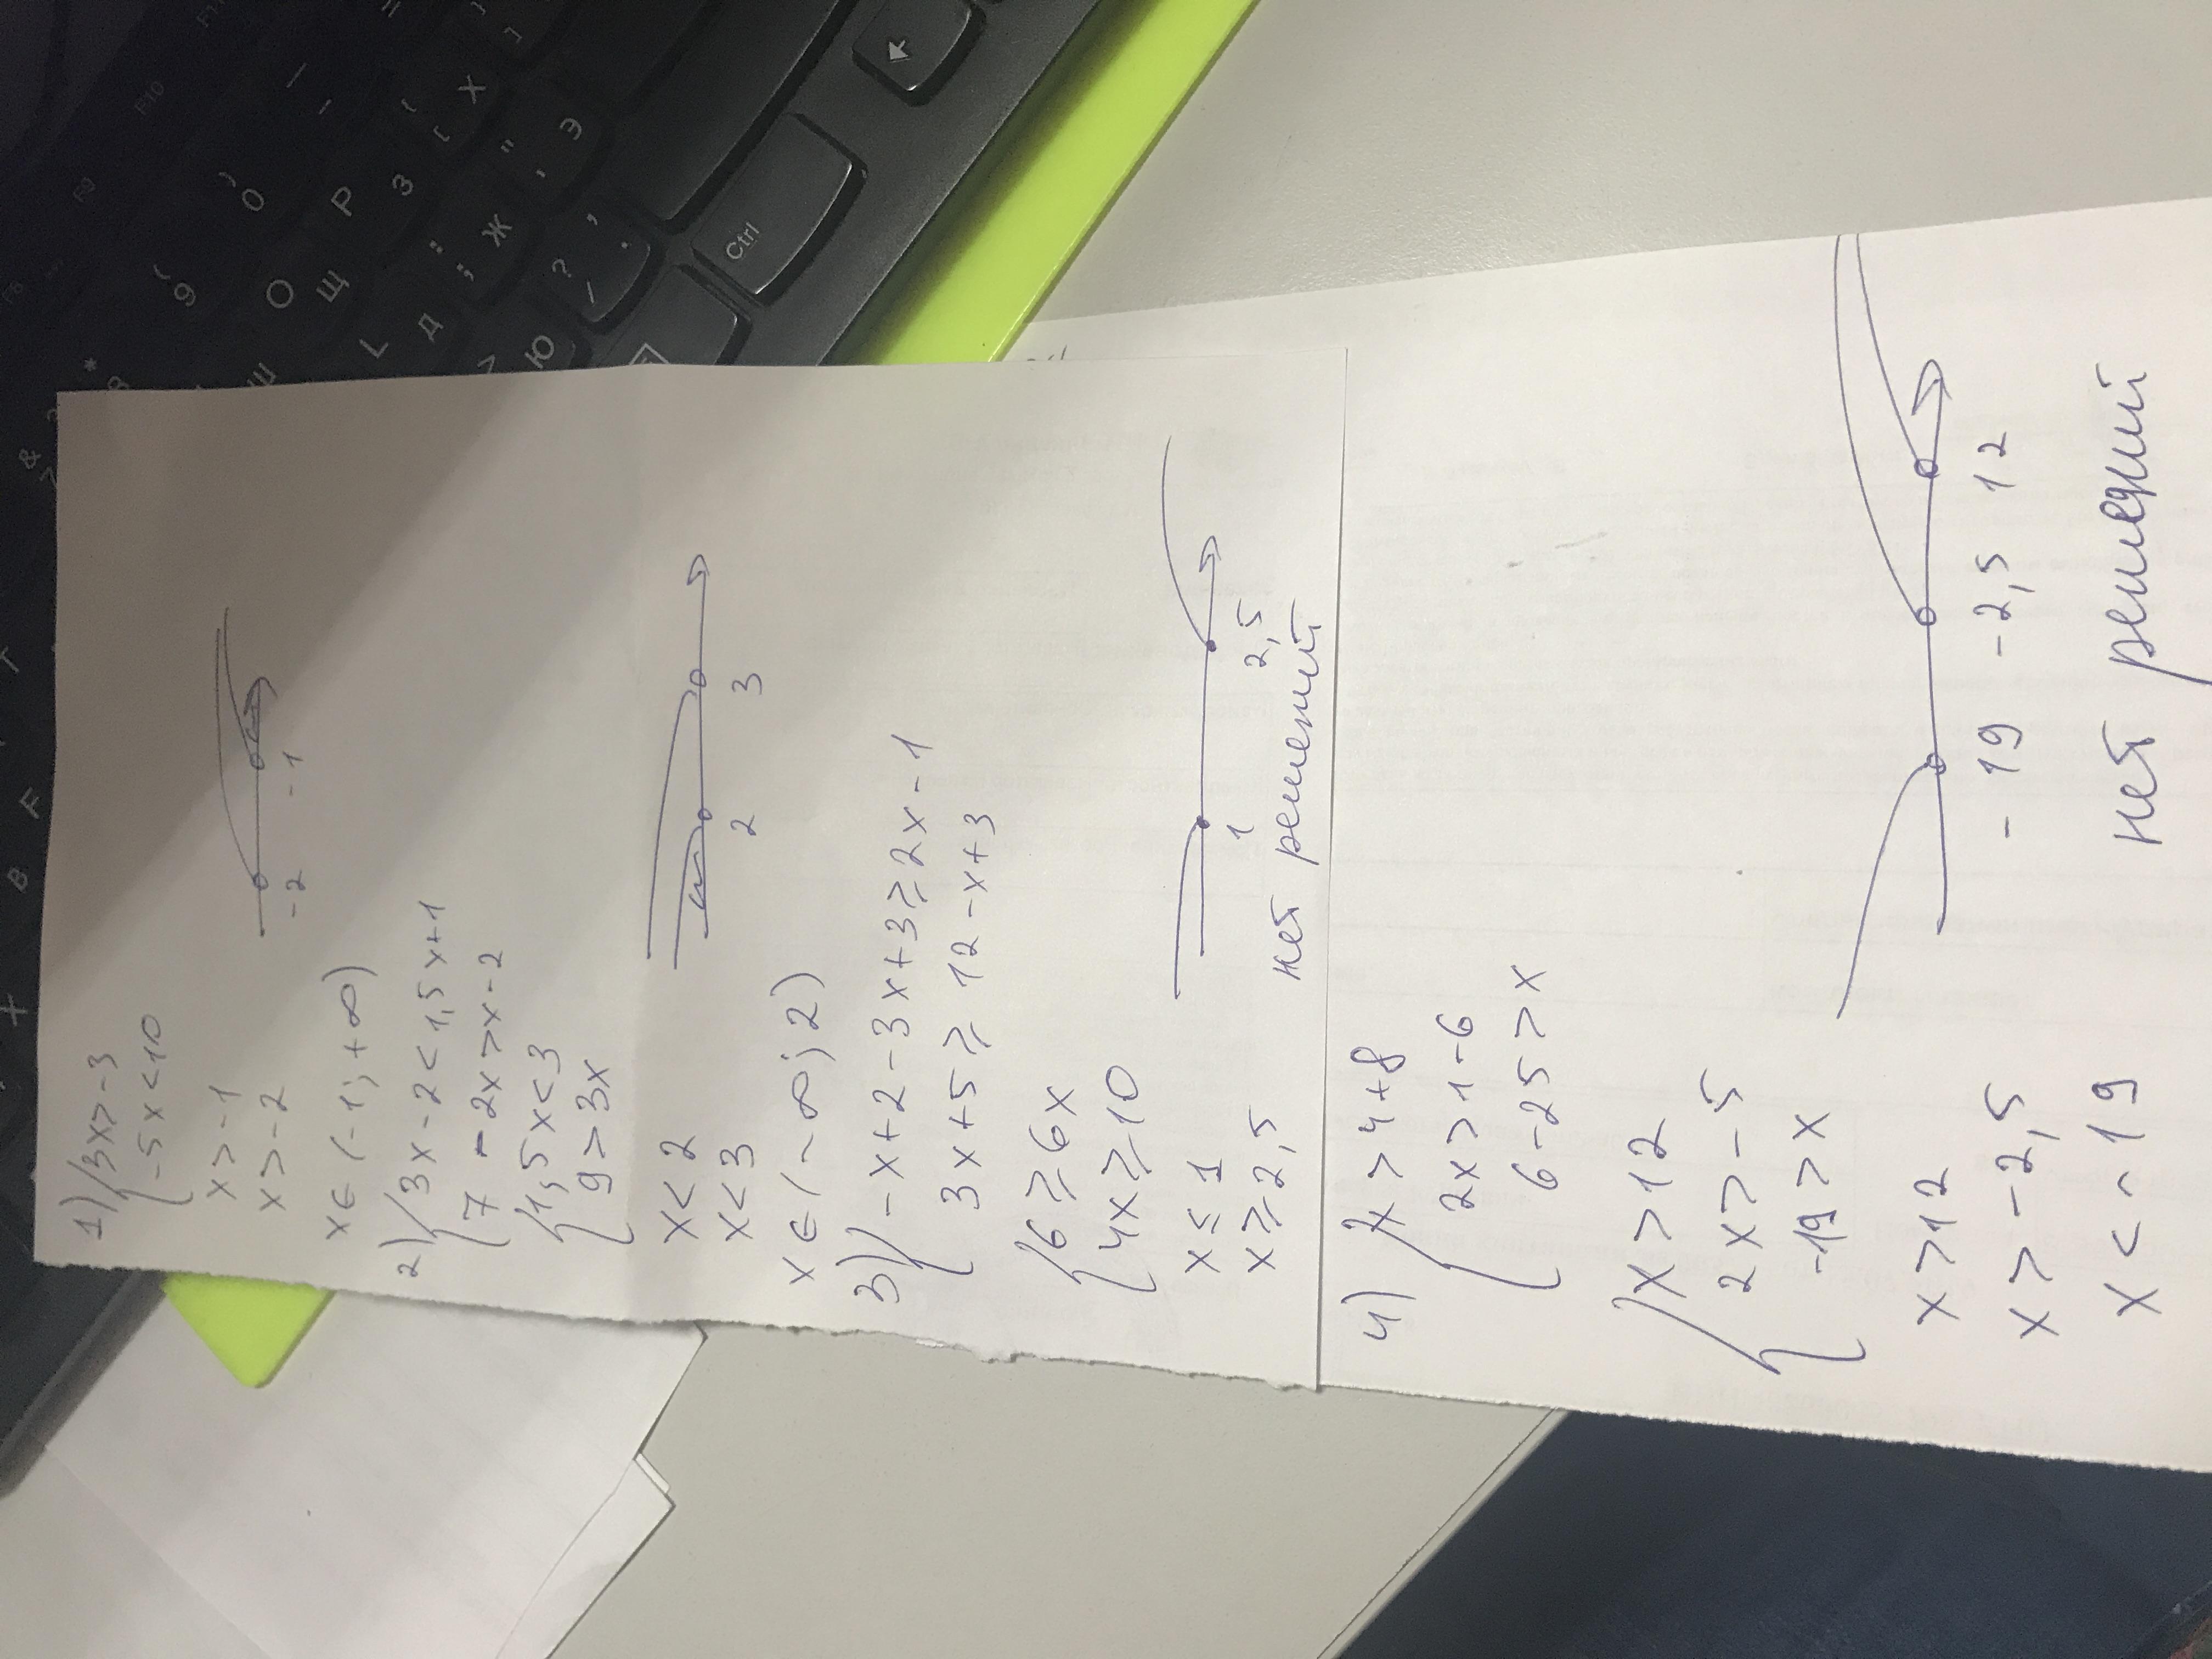 1) { 3x > -3
-5x < 10
x > -1
x > -2
-2 -1
x ∈ (-1; +∞)
2) { 3x - 2 < 1,5x + 1
7 - 2x > x - 2
{ 1,5x < 3
9 > 3x
x < 2
x < 3
2 3
x ∈ (-∞; 2)
3) { -x + 2 - 3x + 3 ≥ 2x - 1
3x + 5 ≥ 12 - x + 3
{ 6 ≥ 6x
4x ≥ 10
x ≤ 1
x ≥ 2,5
1 2,5
нет решений
4) { x > 4 + 8
2x > 1 - 6
6 - 25 > x
{ x > 12
2x > -5
-19 > x
x > 12
x > -2,5
x < -19
-19 -2,5 12
нет решений
Ctrl
F10
F9